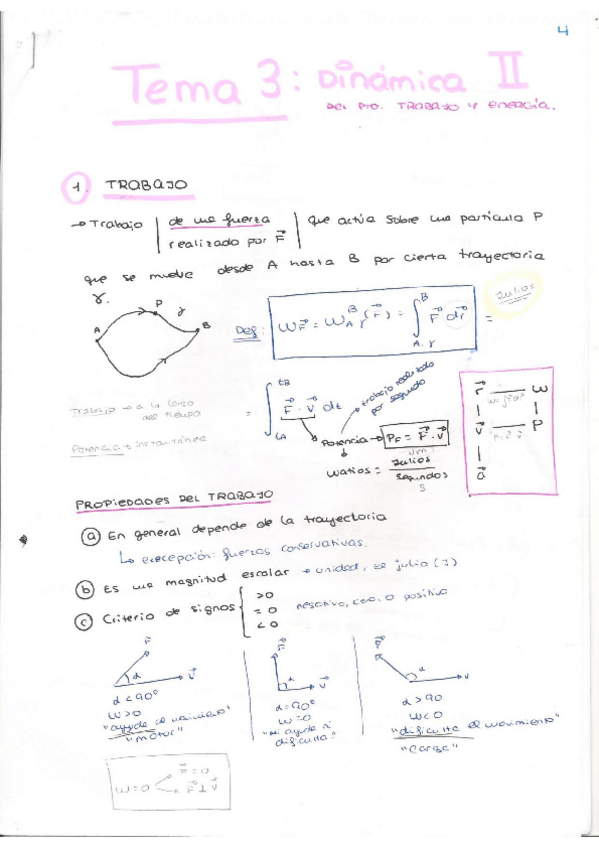 4
Tema 3: Dinámica II
DEL PTO. TRABAJO Y ENERGÍA.
1. TRABAJO
→ Trabajo | de una fuerza | que actúa sobre una partícula P
realizado por F⃗
que se mueve desde A hasta B por cierta trayectoria
γ.
P γ
A B
Def: W_F⃗ = W_Aγ^B (F⃗) = ∫_{A,γ}^{B} F⃗ dr⃗ =
Julios
Trabajo → a lo largo del tiempo
= ∫_{tA}^{tB} F⃗ · v⃗ dt
trabajo realizado por segundo
Potencia → P_F = F⃗ · v⃗
Potencia → instantánea
Watios = Julios / segundos
s
r⃗ — W
v⃗ — P
a⃗
PROPIEDADES DEL TRABAJO
a) En general depende de la trayectoria
↳ excepción: fuerzas conservativas.
b) Es una magnitud escalar → unidad, el julio (J)
c) Criterio de signos { >0
= 0
< 0
negativo, cero o positivo
F⃗ α v⃗
α < 90º
W>0
"ayuda el movimiento"
"motor"
F⃗ α v⃗
α = 90º
W=0
"Ni ayuda ni dificulta"
F⃗ α v⃗
α > 90
W<0
"dificulta el movimiento"
"carga"
W=0
F⃗=0
F⃗ ⊥ v⃗